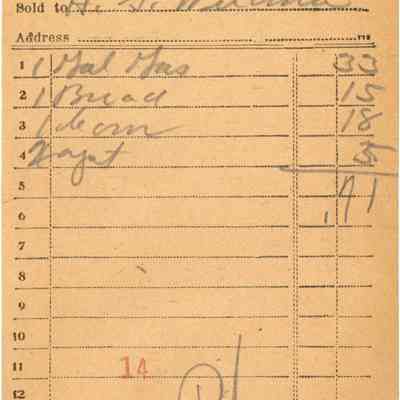 Sold to H.
Address
1 1 Gal Gas 33
2 1 Bread 15
3 1 Corn 18
4 5
5
6 .71
7
8
9
10
11 14
12